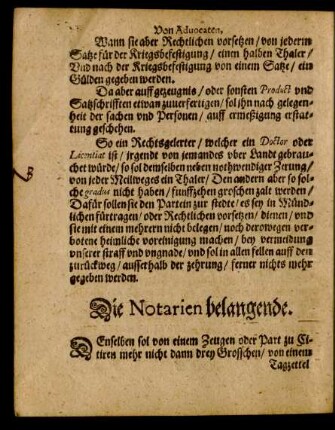 Von Advocaten.
Wann sie aber Rechtlichen vorsetzen / von jederm
Satze für der Kriegsbefestigung / einen halben Thaler /
Vnd nach der Kriegsbefestigung von einem Satze / ein
Gülden gegeben werden.
Da aber auff gezeugnis / oder sonsten Product vnd
Satzschrifften etwan zuuerfertigen / sol ihn nach gelegen-
heit der sachen vnd Personen / auff ermeßigung erstat-
tung geschehen.
So ein Rechtsgelerter / welcher ein Doctor oder
Licentiat ist / jrgendt von jemandes vber Landt gebrau-
chet würde / so sol demselben neben nothwendiger Zerung /
von jeder Meilweges ein Thaler / Den andern aber so sol-
che gradus nicht haben / funffzehen groschen zalt werden /
Dafür sollen sie den Partein zur stedte / es sey in Münd-
lichen fürtragen / oder Rechtlichen vorsetzen / dienen / vnd
sie mit einem mehrern nicht belegen / noch derowegen ver-
botene heimliche voreinigung machen / bey vermeidung
vnserer straff vnd vngnade / vnd sol in allen fellen auff dem
zurückweg / ausserhalb der zehrung / ferner nichts mehr
gegeben werden.
Die Notarien belangende.
DEnselben sol von einem Zeugen oder Part zu Ci-
tiren mehr nicht dann drey Grosschen / von einem
Tagzettel